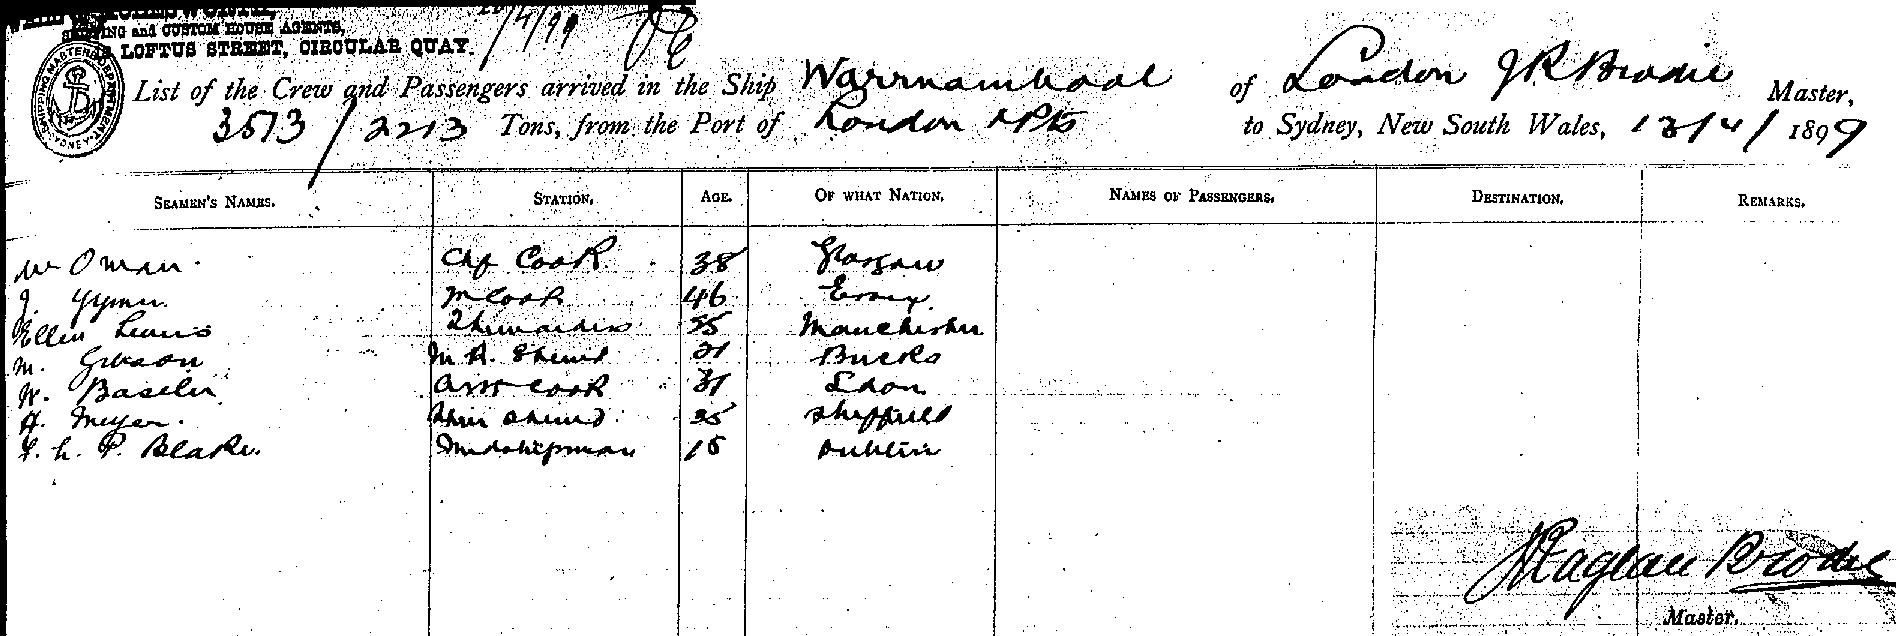 SHIPPING and CUSTOM HOUSE AGENTS,
LOFTUS STREET, CIRCULAR QUAY.
List of the Crew and Passengers arrived in the Ship Warrnambool of London J R Brodie Master,
3513 / 2213 Tons, from the Port of London & Pts to Sydney, New South Wales, 13/4/1899
SEAMEN'S NAMES. STATION. AGE. OF WHAT NATION. NAMES OF PASSENGERS. DESTINATION. REMARKS.
Wm Oman. Chf Cook 38 Glasgow
J. 46 Essex
Ellen Lewis Stewardess Manchester
M. Gibson Stewd 21 Bucks
W. Baseler Asst Cook 31 Ldon
A. Meyer. Stewd 35 Sheffield
L. P. Blake. Midshipman 15 Dublin
J Raglan Brodie
Master.